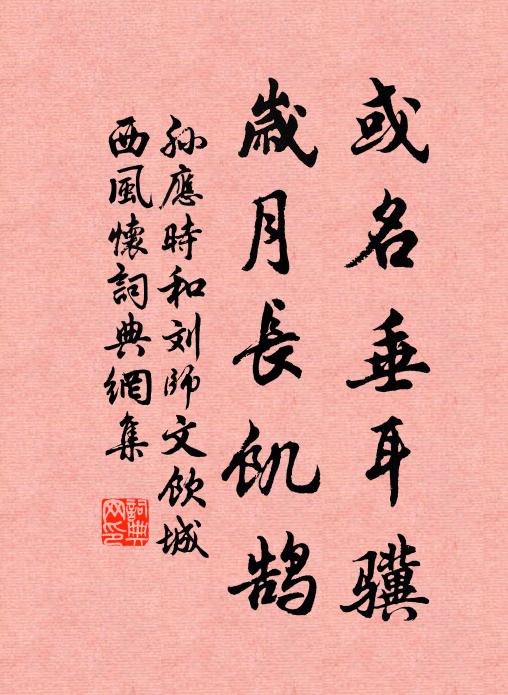 或名垂耳骥
歲月長飢鹄
孙應時和刘師文飲城
西風懷詞典網集
詞典网印